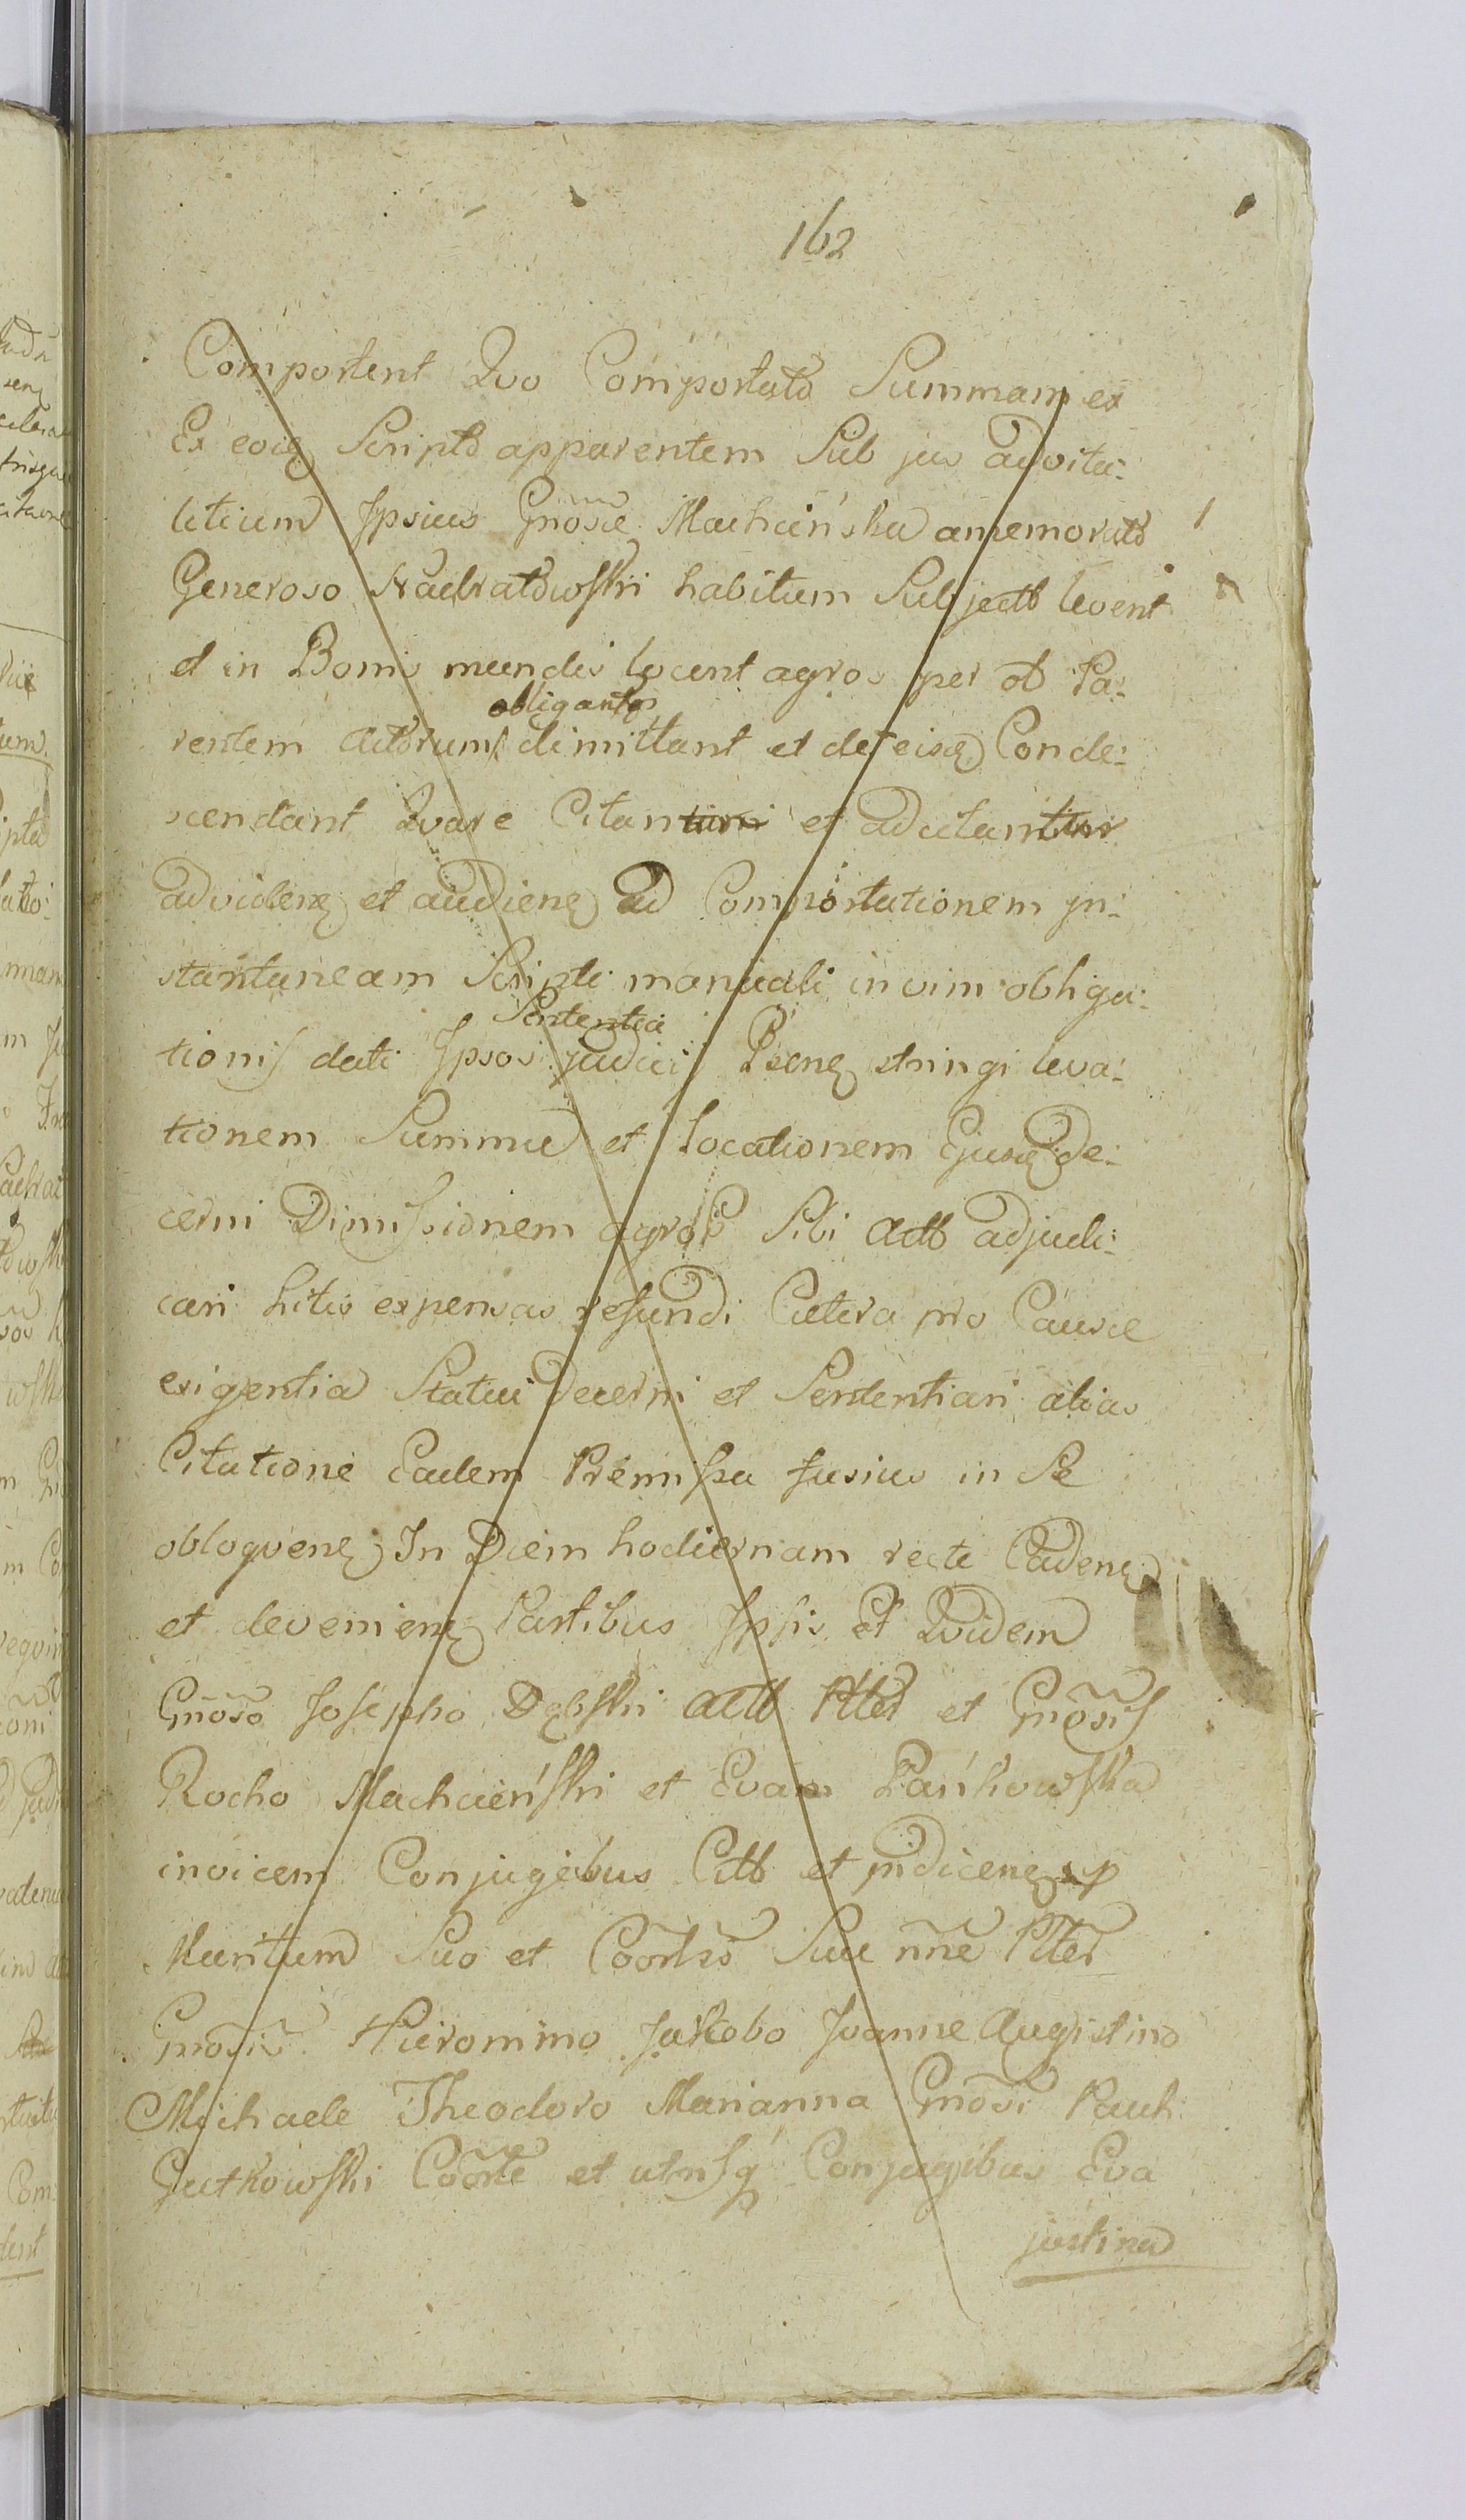 162
Comportent Quo Comportato Summam ex
Ex eoq Scripto apparentem Sub jus advita:
litium Ipsius Gnosae Machcińska a memorato
Generoso Nadratowski habitum Subjecto levent
et in Bonis mundis locent agros per ob Pa:
obligatos
rentem Actorum dimittant et de eisq Conde:
scendant Quare Citantur et adcitantur
ad videnq et audienq ad Comportationem in:
stantaneam Scripti manuali in vim obliga:
Sententia
tionis dati Ipsos judicii Psenq stringi leva:
tionem Summae et locationem Ejusq de:
cerni Dimissionem agros Sibi Acto adjudi:
cari litis expensas refundi Caetera pro Causae
exigentia Statui Decerni et Sententiari alias
Citatione Eadem Premissa fusius in Se
obloquenq In Diem hodiernam recte Cadenq
et devenienq Partibus Ipsis Et Quidem
Gnoso Josepho Dębski Acto Plter et Gnosis
Rocho Machcieński et Evam Pańkowska
invicem Conjugibus Citto et indicenq
Maritum Suo et Coortis Suae nne Plter
Gnosis Hieronimo Jakobo Joanne Augistino
Michaele Theodoro Marianna Gnosi Pauli
Gutkowski Coorte et utrisq Conjugibus Eva
justina